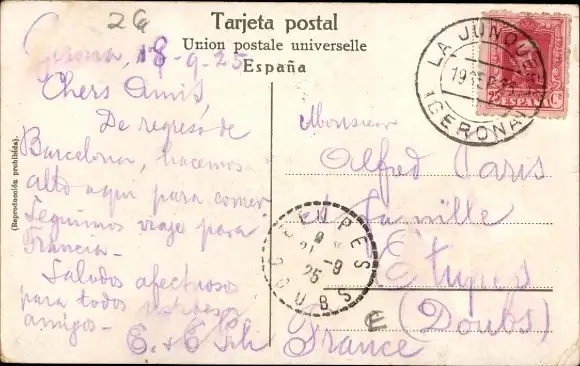 26
Tarjeta postal
Union postale universelle
España
Gerona, 18-9-25
Chers Amis,
De regreso de
Barcelona, hacemos
alto aqui para comer.
Seguimos viaje para
Francia-
Saludos afectuosos
para todos
amigos-
E. & C.
(Reproducción prohibida).
LA JUNQUERA
(GERONA)
25 ESPAÑA Cs
Monsieur
Alfred Paris
et famille
Etupes
(Doubs)
France
ETUPES
21-9
25
DOUBS